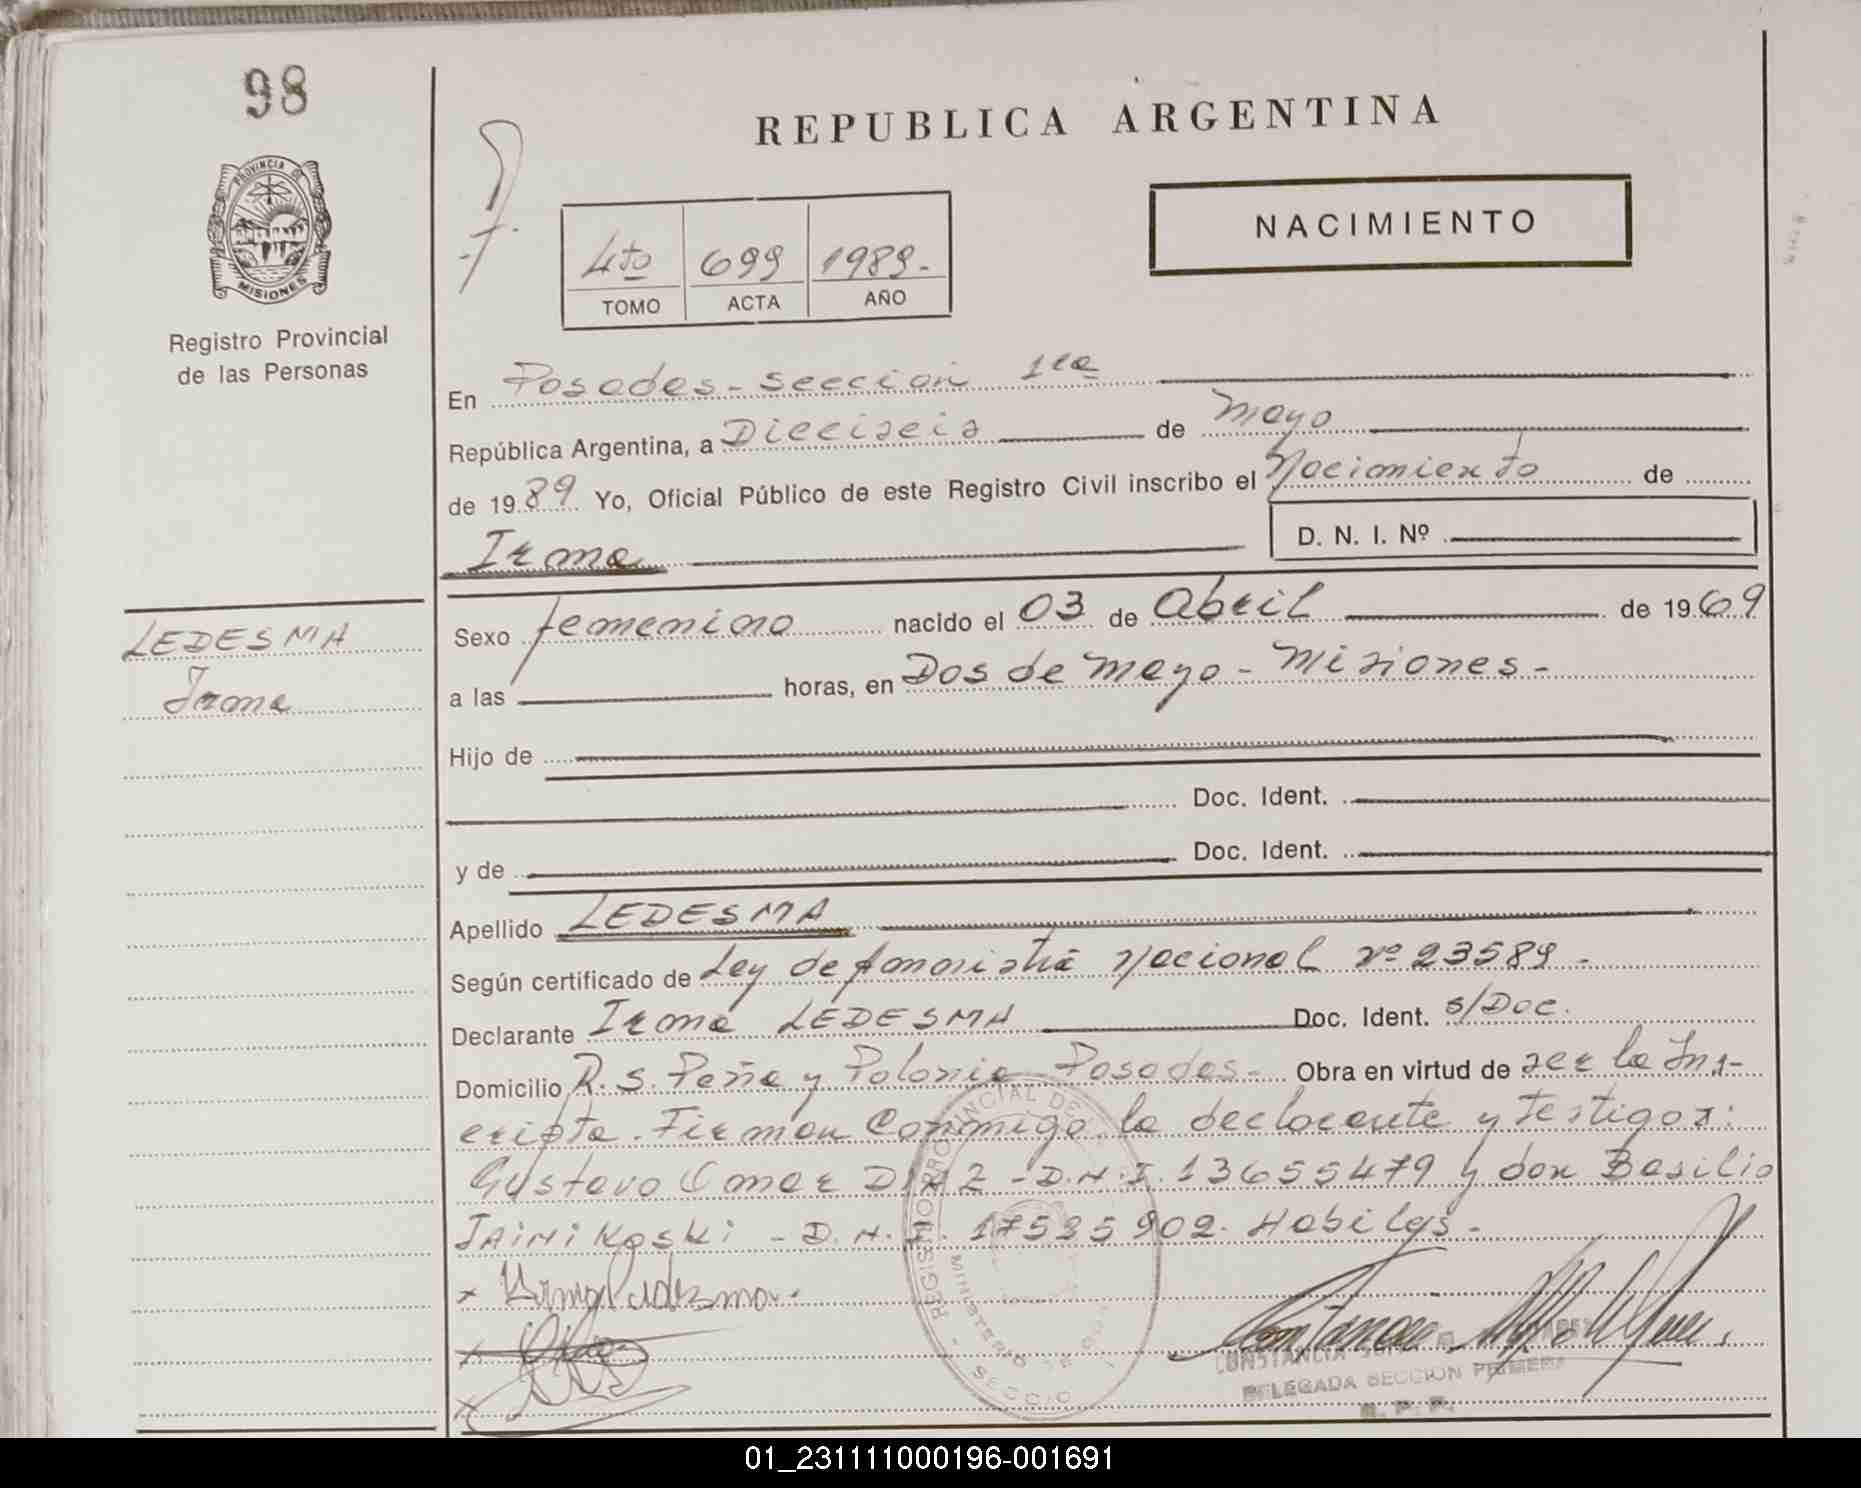 98
REPUBLICA ARGENTINA
PROVINCIA DE
MISIONES
NACIMIENTO
4to 699 1989.-
TOMO ACTA AÑO
Registro Provincial
de las Personas
En Posadas - Sección 1ra
República Argentina, a Dieciseis de Mayo
de 1989 Yo, Oficial Público de este Registro Civil inscribo el Nacimiento de
Irma D. N. I. Nº
LEDESMA
Irma
Sexo femenino nacido el 03 de Abril de 1969
a las horas, en Dos de Mayo - Misiones -
Hijo de
Doc. Ident.
y de Doc. Ident.
Apellido LEDESMA
Según certificado de Ley de Amnistía Nacional nº 23589 -
Declarante Irma LEDESMA Doc. Ident. s/Doc.
Domicilio R. S. Peña y Polonia Posadas - Obra en virtud de ser la Ins-
cripta. Firman Conmigo la declarante y testigos:
Gustavo Omar DIAZ - D.N.I. 13655479 y don Basilio
JAINIKoski - D.N.I. 17535902. Habiles -
x Irma Ledesma.
x
x
REGISTRO PROVINCIAL DE
MINISTERIO DE
CONSTANCIA
DELEGADA SECCION PRIMERA
R. P. P.
01_231111000196-001691